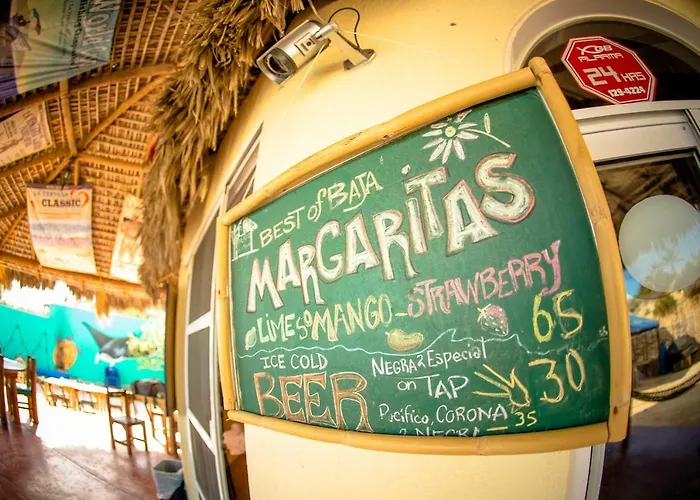 BEST of BAJA
MARGARITAS
LIMES MANGO - STRAWBERRY 65
ICE COLD
BEER
NEGRA & ESPECIAL
ON TAP 30
PACIFICO, CORONA 35
& NEGRA
CLASSIC
ALARMA
24 HRS
129-4224